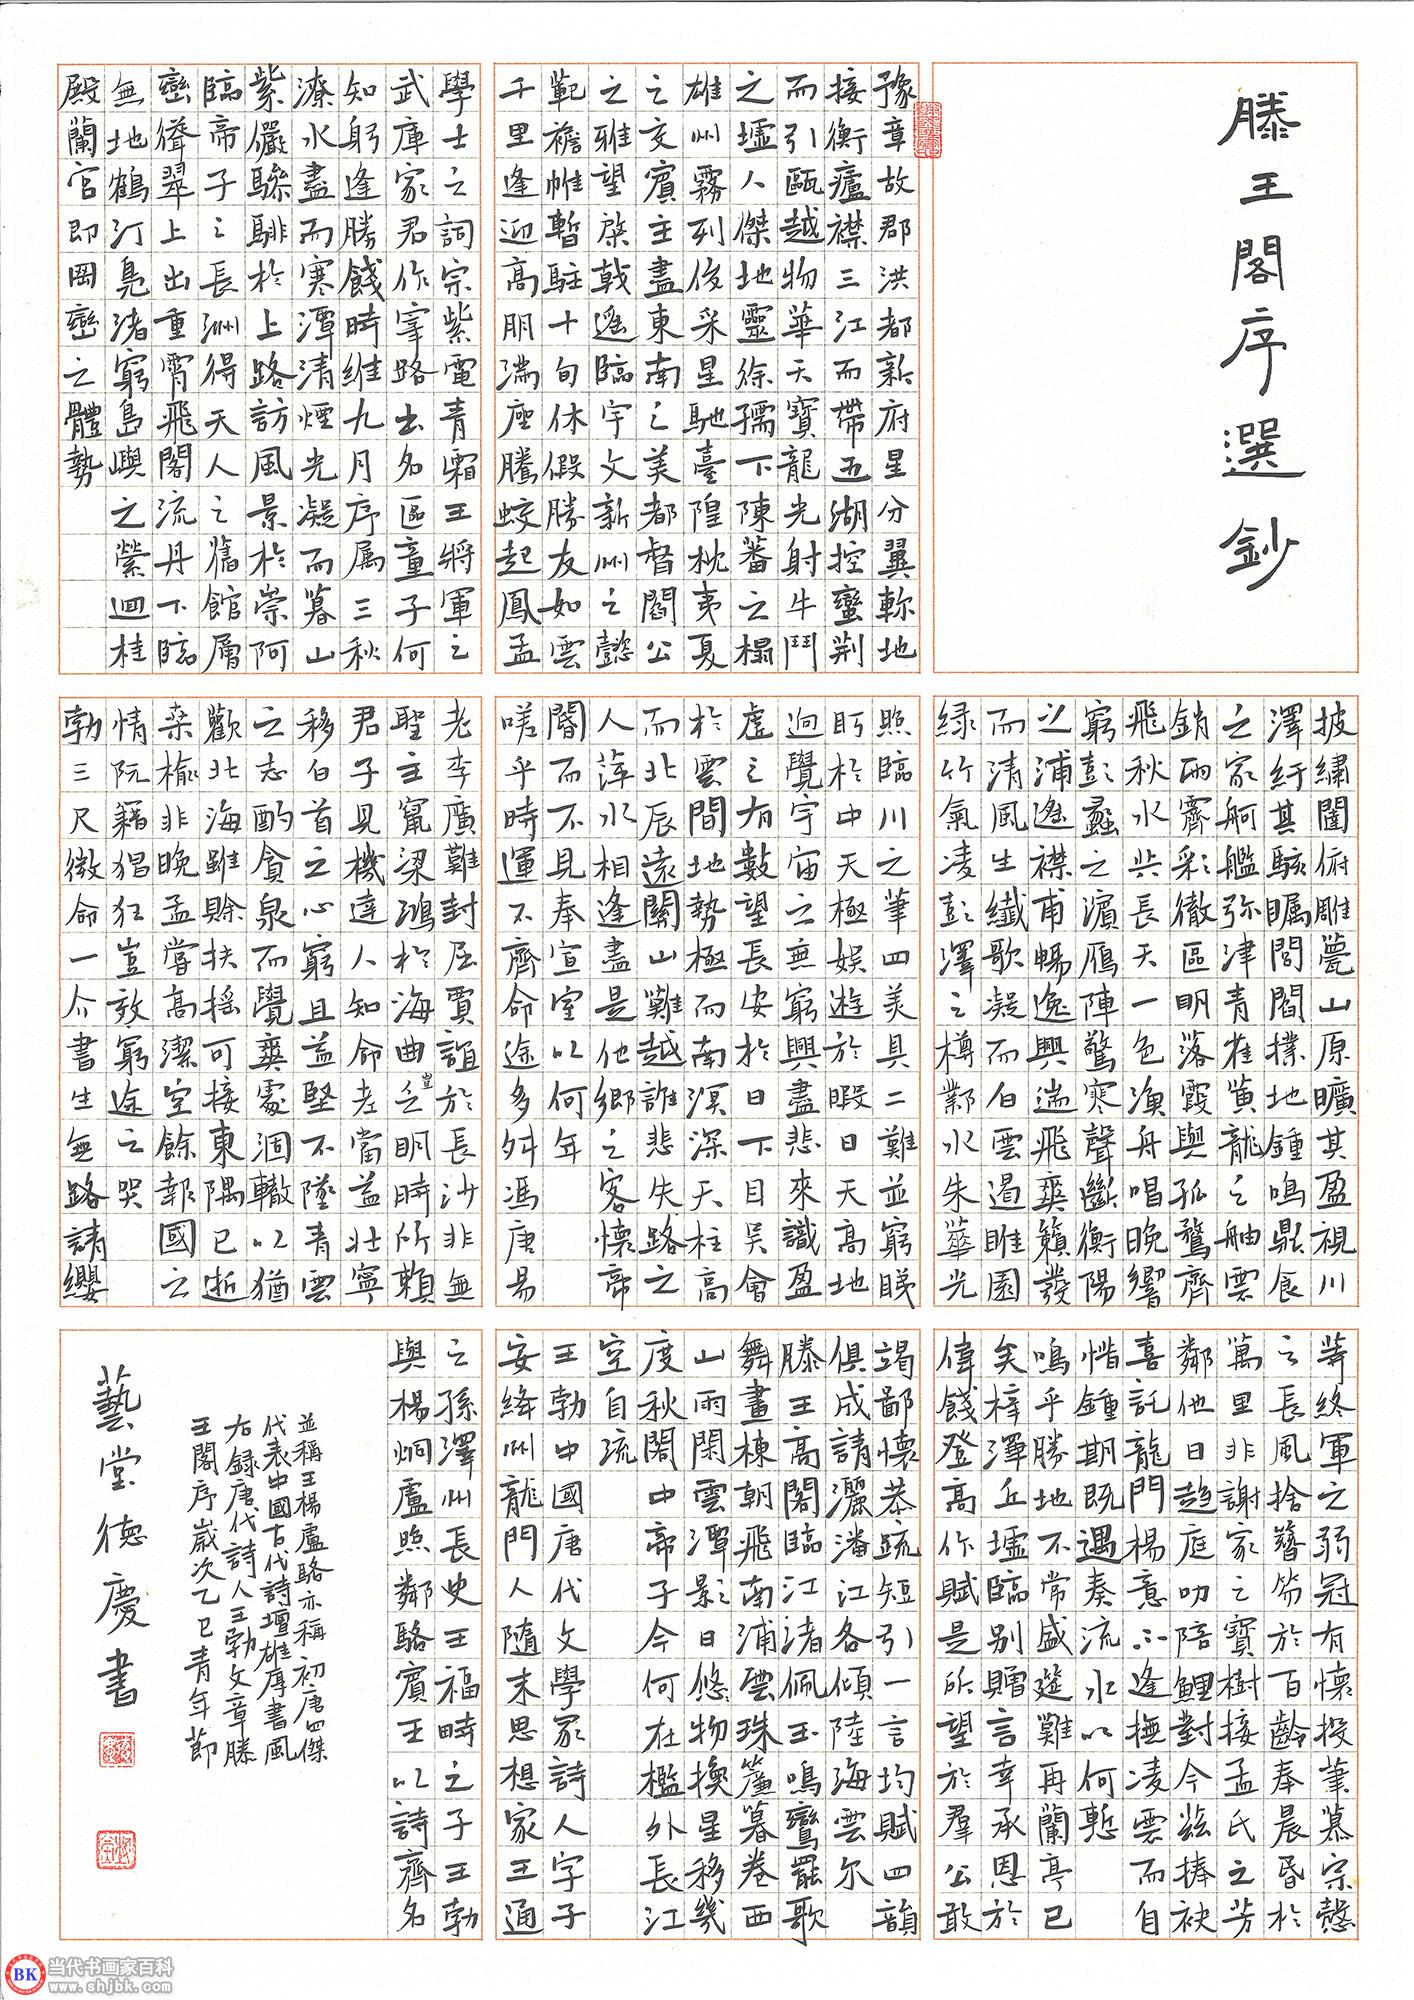 滕王閣序選鈔
豫章故郡洪都新府星分翼軫地
接衡廬襟三江而帶五湖控蠻荆
而引甌越物華天寶龍光射牛鬥
之墟人傑地靈徐孺下陳蕃之榻
雄州霧列俊采星馳臺隍枕夷夏
之交賓主盡東南之美都督閻公
之雅望棨戟遥臨宇文新州之懿
範襜帷暫駐十旬休假勝友如雲
千里逢迎高朋满座騰蛟起鳳孟
學士之詞宗紫電青霜王將軍之
武庫家君作宰路出名區童子何
知躬逢勝餞時維九月序属三秋
潦水盡而寒潭清煙光凝而暮山
紫儼驂騑於上路訪風景於崇阿
臨帝子之長洲得天人之舊館層
巒聳翠上出重霄飛閣流丹下臨
無地鶴汀鳧渚窮島嶼之縈迴桂
殿蘭宫即岡巒之體勢
披繡闥俯雕甍山原曠其盈視川
澤紆其駭矚閭閻撲地鍾鳴鼎食
之家舸艦弥津青雀黄龍之舳雲
銷雨霽彩徹區明落霞與孤鶩齊
飛秋水共長天一色漁舟唱晚響
窮彭蠡之濱雁陣驚寒聲斷衡陽
之浦遥襟甫暢逸興遄飛爽籟發
而清風生纖歌凝而白雲遏睢園
绿竹氣凌彭澤之樽鄴水朱華光
照臨川之筆四美具二難並窮睇
眄於中天極娱遊於暇日天高地
迥覺宇宙之無窮興盡悲來識盈
虚之有數望長安於日下目吴會
於雲間地勢極而南溟深天柱高
而北辰遠關山難越誰悲失路之
人萍水相逢盡是他鄉之客懷帝
閽而不見奉宣室以何年
嗟乎時運不齊命途多舛馮唐易
老李廣難封屈賈誼於長沙非無
聖主竄梁鴻於海曲豈乏明時所賴
君子見機達人知命老當益壯寧
移白首之心窮且益堅不墜青雲
之志酌貪泉而覺爽處涸轍以猶
歡北海雖賒扶摇可接東隅已逝
桑榆非晚孟嘗高潔空餘報國之
情阮籍猖狂豈效窮途之哭
勃三尺微命一介書生無路請纓
等終軍之弱冠有懷投筆慕宗愨
之長風捨簪笏於百齡奉晨昏於
萬里非謝家之寶樹接孟氏之芳
鄰他日趨庭叨陪鯉對今兹捧袂
喜託龍門楊意不逢撫凌雲而自
惜鍾期既遇奏流水以何慙
鳴乎勝地不常盛筵難再蘭亭已
矣梓澤丘墟臨别贈言幸承恩於
偉餞登高作賦是所望於羣公敢
竭鄙懷恭疏短引一言均賦四韻
俱成請灑潘江各傾陸海雲尔
滕王高閣臨江渚佩玉鳴鸞罷歌
舞畫棟朝飛南浦雲珠簾暮卷西
山雨閑雲潭影日悠物換星移幾
度秋閣中帝子今何在檻外長江
空自流
王勃中國唐代文學家詩人字子
安絳州龍門人隨末思想家王通
之孫澤州長史王福畤之子王勃
與楊炯盧照鄰駱賓王以詩齊名
並稱王楊盧駱亦稱初唐四傑
代表中國古代詩壇雄厚書風
右録唐代詩人王勃文章滕
王閣序嵗次乙巳青年節
藝堂德慶書
BK
当代书画家百科
www.shjbk.com